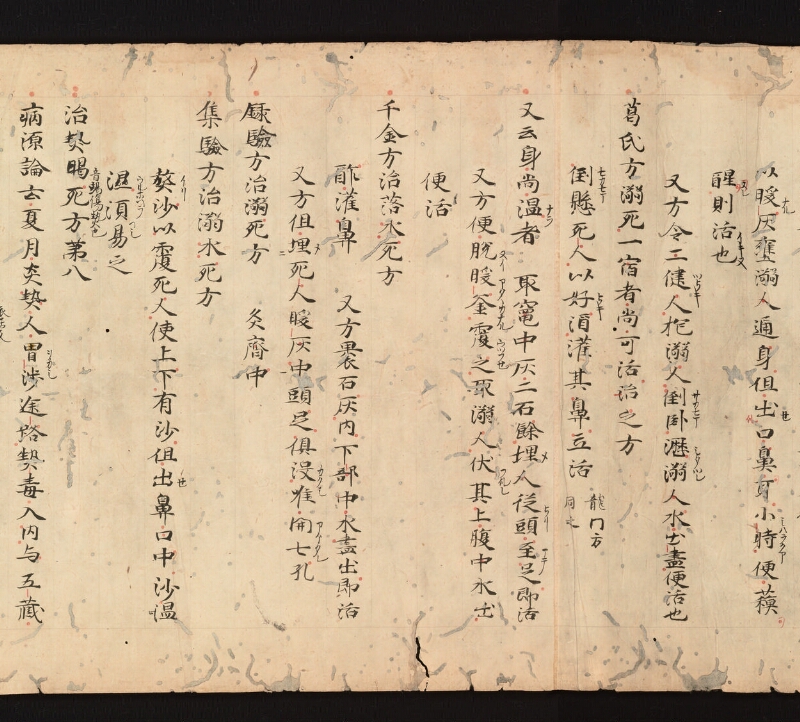 以暖灰壅溺人通身但出口鼻耳小時便蘓
醒則活也
又方令二健人抱溺人倒卧瀝溺人水出盡便活也
葛氏方溺死一宿者尚可活治之方
倒懸死人以好酒灌其鼻立活 龍門方同之
又云身尚温者 取竈中灰二石餘埋人従頭至足即活
又方便脱暖釜覆之取溺人伏其上腹中水出
便活
千金方治落水死方
酢灌鼻 又方裹石灰内下部中水盡出即活
又方但埋死人暖灰中頭足俱没唯開七孔
録驗方治溺死方 灸齊中
集驗方治溺水死方
熬沙以覆死人使上下有沙但出鼻口中沙温
濕須易之
治熱暍死方第八
病源論云夏月炎熱人冒渉途路熱毒入内与五蔵